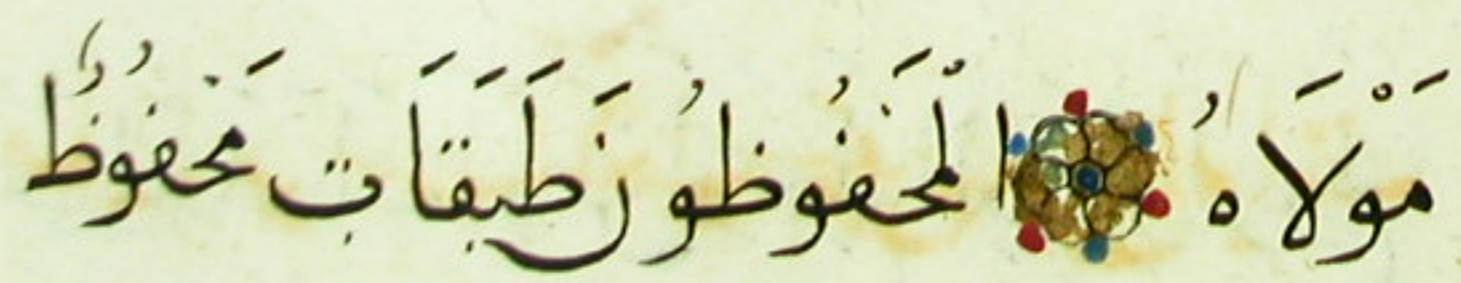 مَوْلَاهُ الْمَحْفُوظُونَ طَبَقَات مَحْفُوظٌ